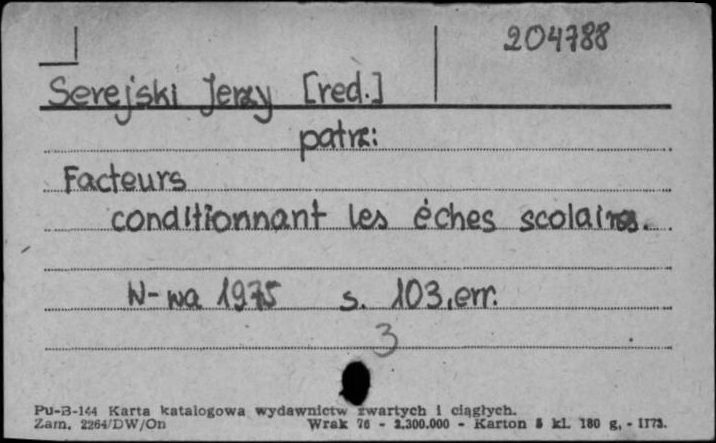 204788
Serejski Jerzy [red.]
patrz:
Facteurs
conditionnant les éches scolaires.
W-wa 1975 s. 103, err.
3
Pu-B-144 Karta katalogowa wydawnictw zwartych i ciągłych.
Zam. 2264/DW/On Wrak 76 - 2.300.000 - Karton 5 kl. 180 g. - II73.